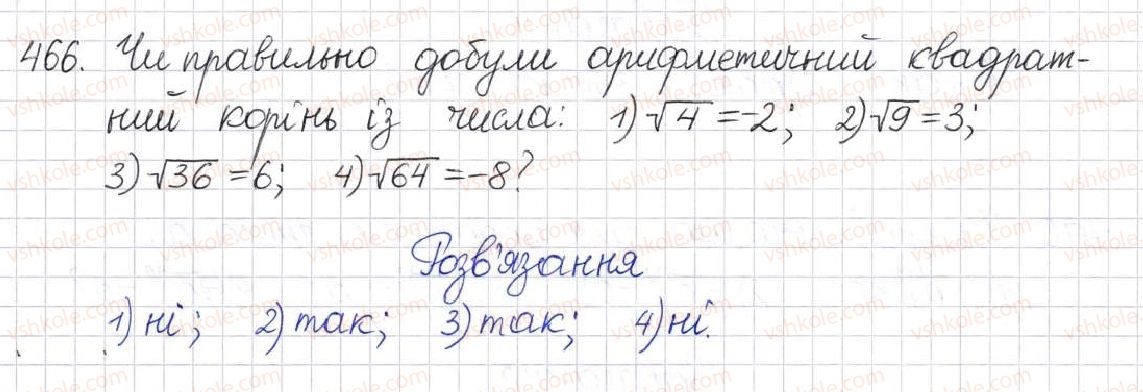 466. Чи правильно добули арифметичний квадрат-
ний корінь із числа: 1) √4 = -2; 2) √9 = 3;
3) √36 = 6; 4) √64 = -8?
Розв'язання
1) ні; 2) так; 3) так; 4) ні.